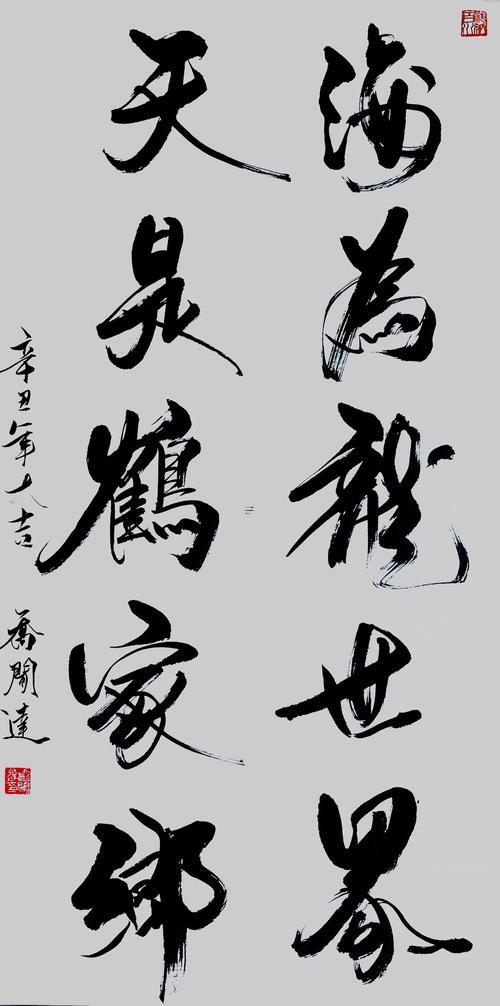 海為龍世界
天是鶴家鄉
辛丑年大吉 喬聞達